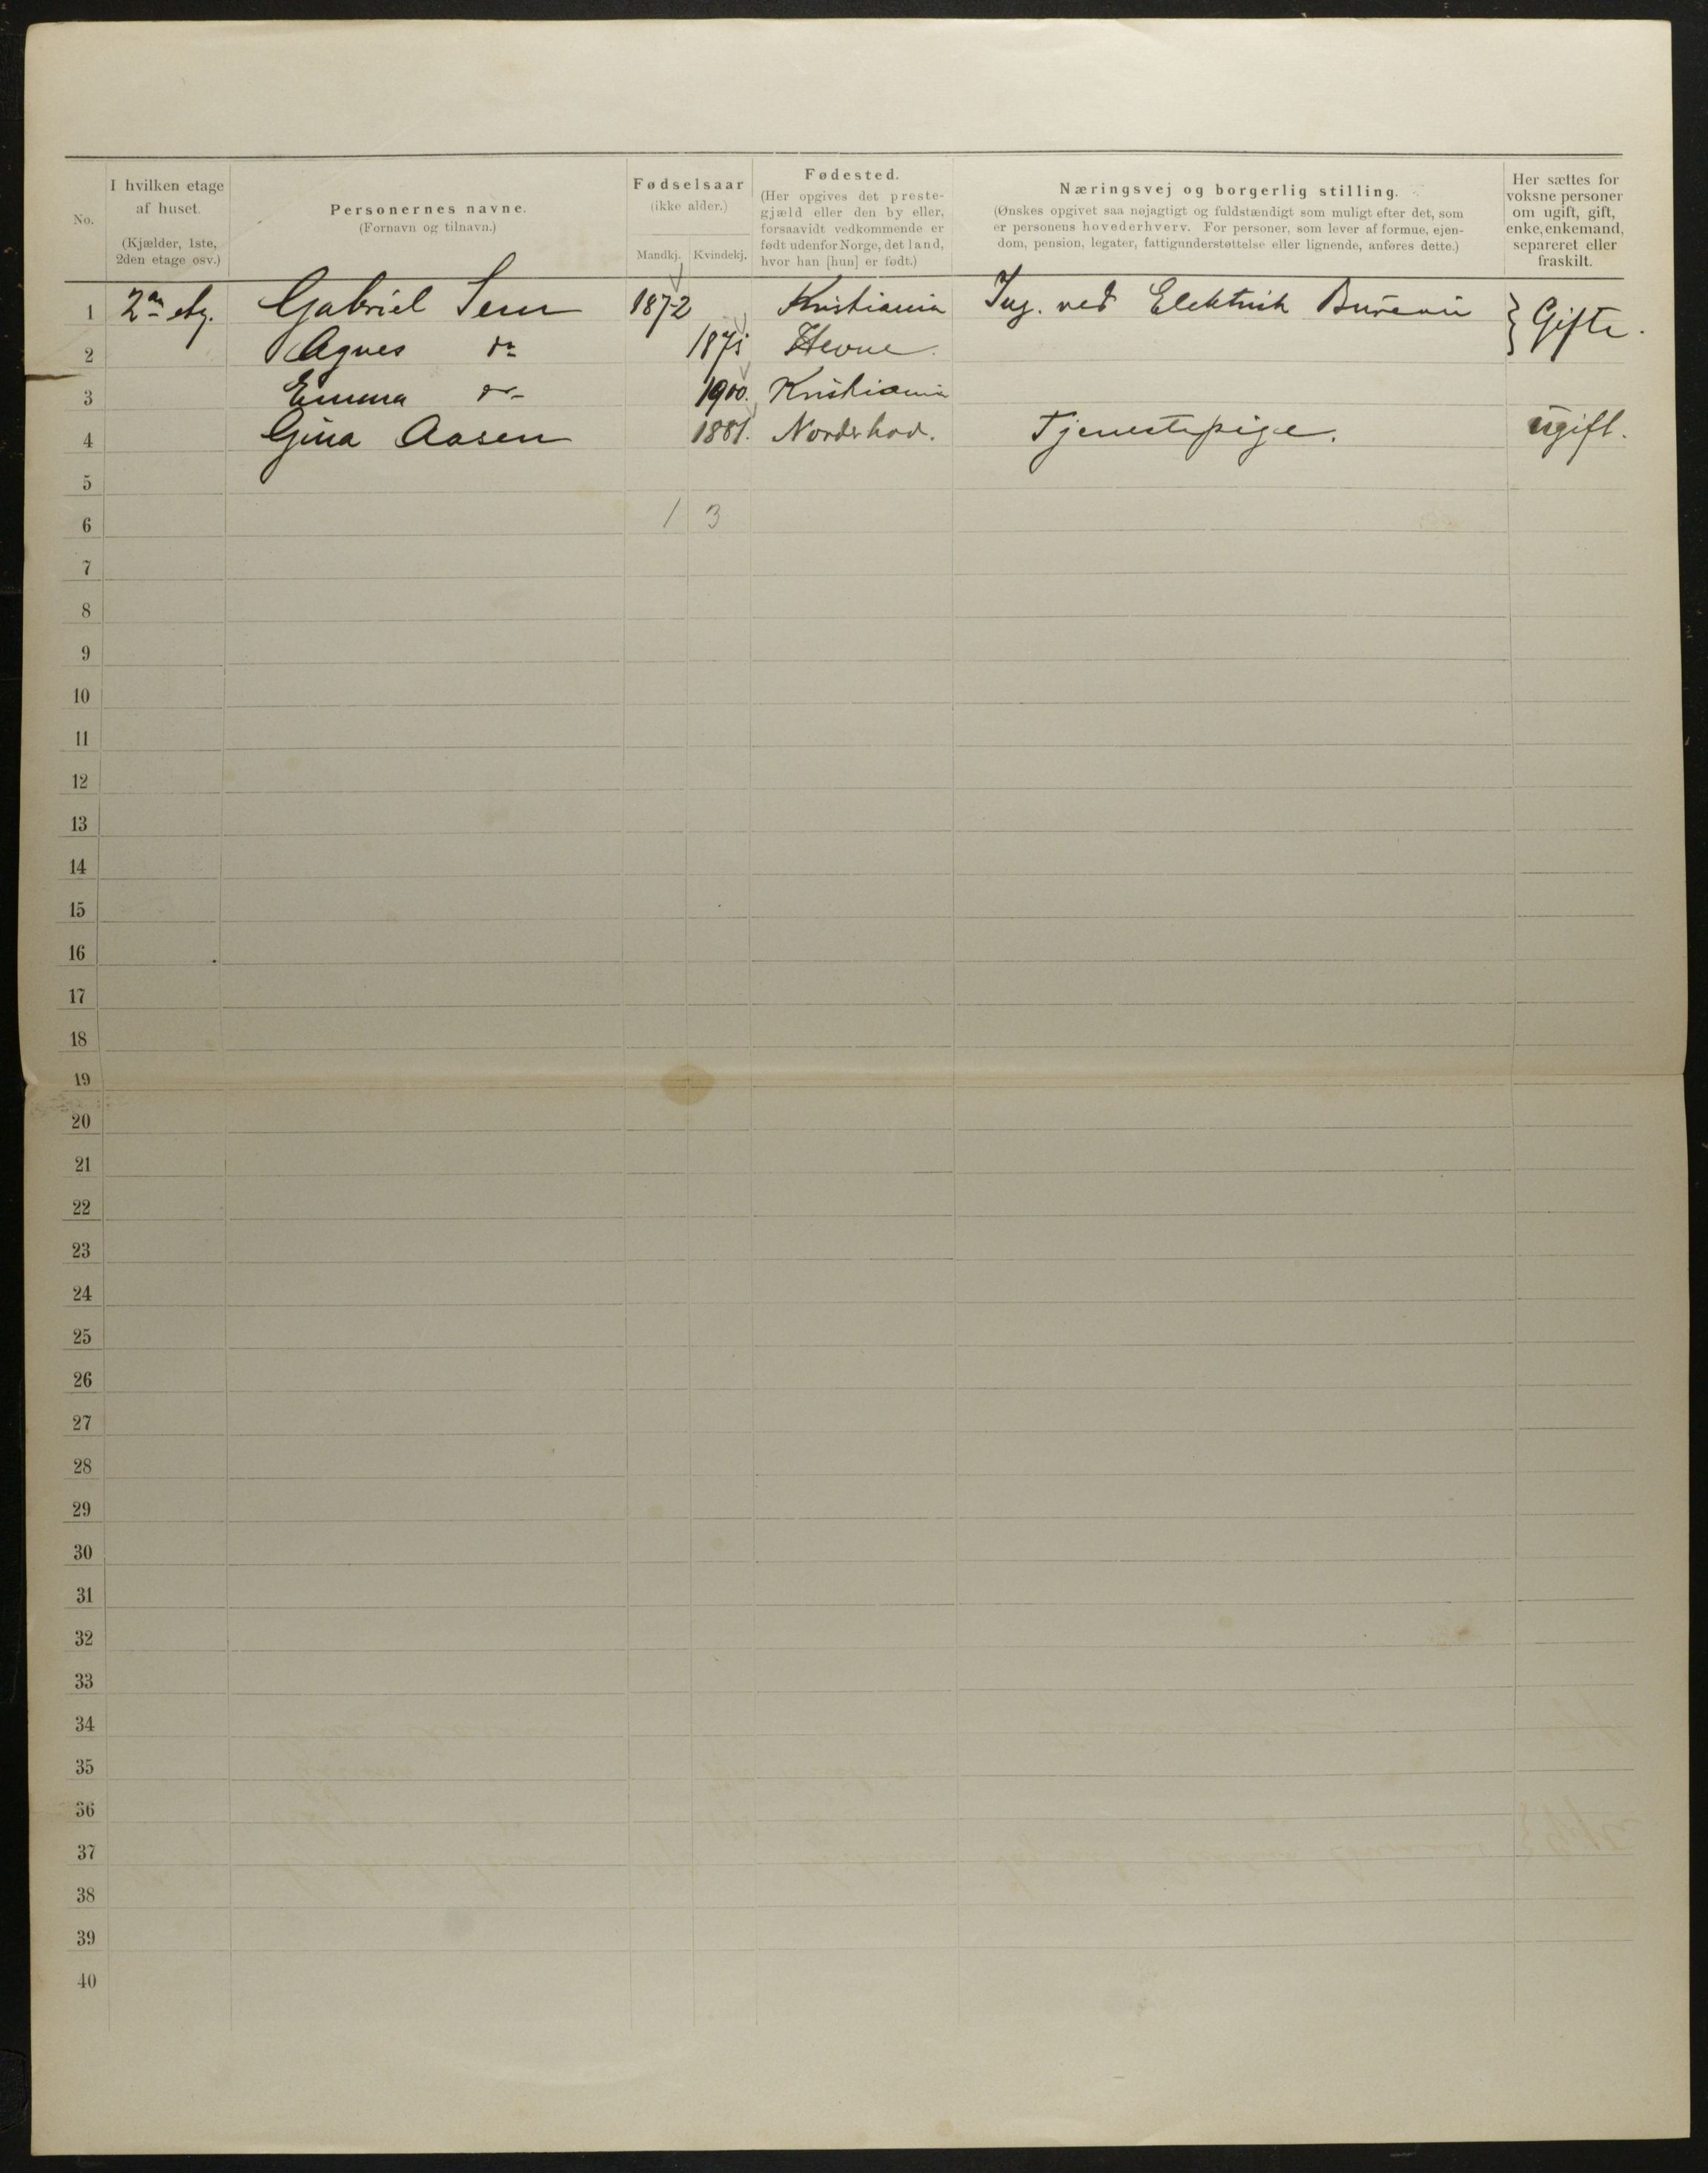 No.
I hvilken etage
af huset.
(Kjælder, 1ste,
2den etage osv.)
Personernes navne.
(Fornavn og tilnavn.)
Fødselsaar
(ikke alder.)
Mandkj. Kvindekj.
Fødested.
(Her opgives det preste-
gjæld eller den by eller,
forsaavidt vedkommende er
født udenfor Norge, det land,
hvor han [hun] er født.)
Næringsvej og borgerlig stilling.
(Ønskes opgivet saa nøjagtigt og fuldstændigt som muligt efter det, som
er personens hovederhverv. For personer, som lever af formue, ejen-
dom, pension, legater, fattigunderstøttelse eller lignende, anføres dette.)
Her sættes for
voksne personer
om ugift, gift,
enke, enkemand,
separeret eller
fraskilt.
1 2en etg. Gabriel Sem 1872 Kristiania Ing. ved Elektrisk Bureau } Gifte.
2 Agnes do 1875 Hevne.
3 Emma do 1900. Kristiania
4 Gina Aasen 1881. Norderhov. Tjenestepige. ugift.
5
6 1 3
7
8
9
10
11
12
13
14
15
16
17
18
19
20
21
22
23
24
25
26
27
28
29
30
31
32
33
34
35
36
37
38
39
40